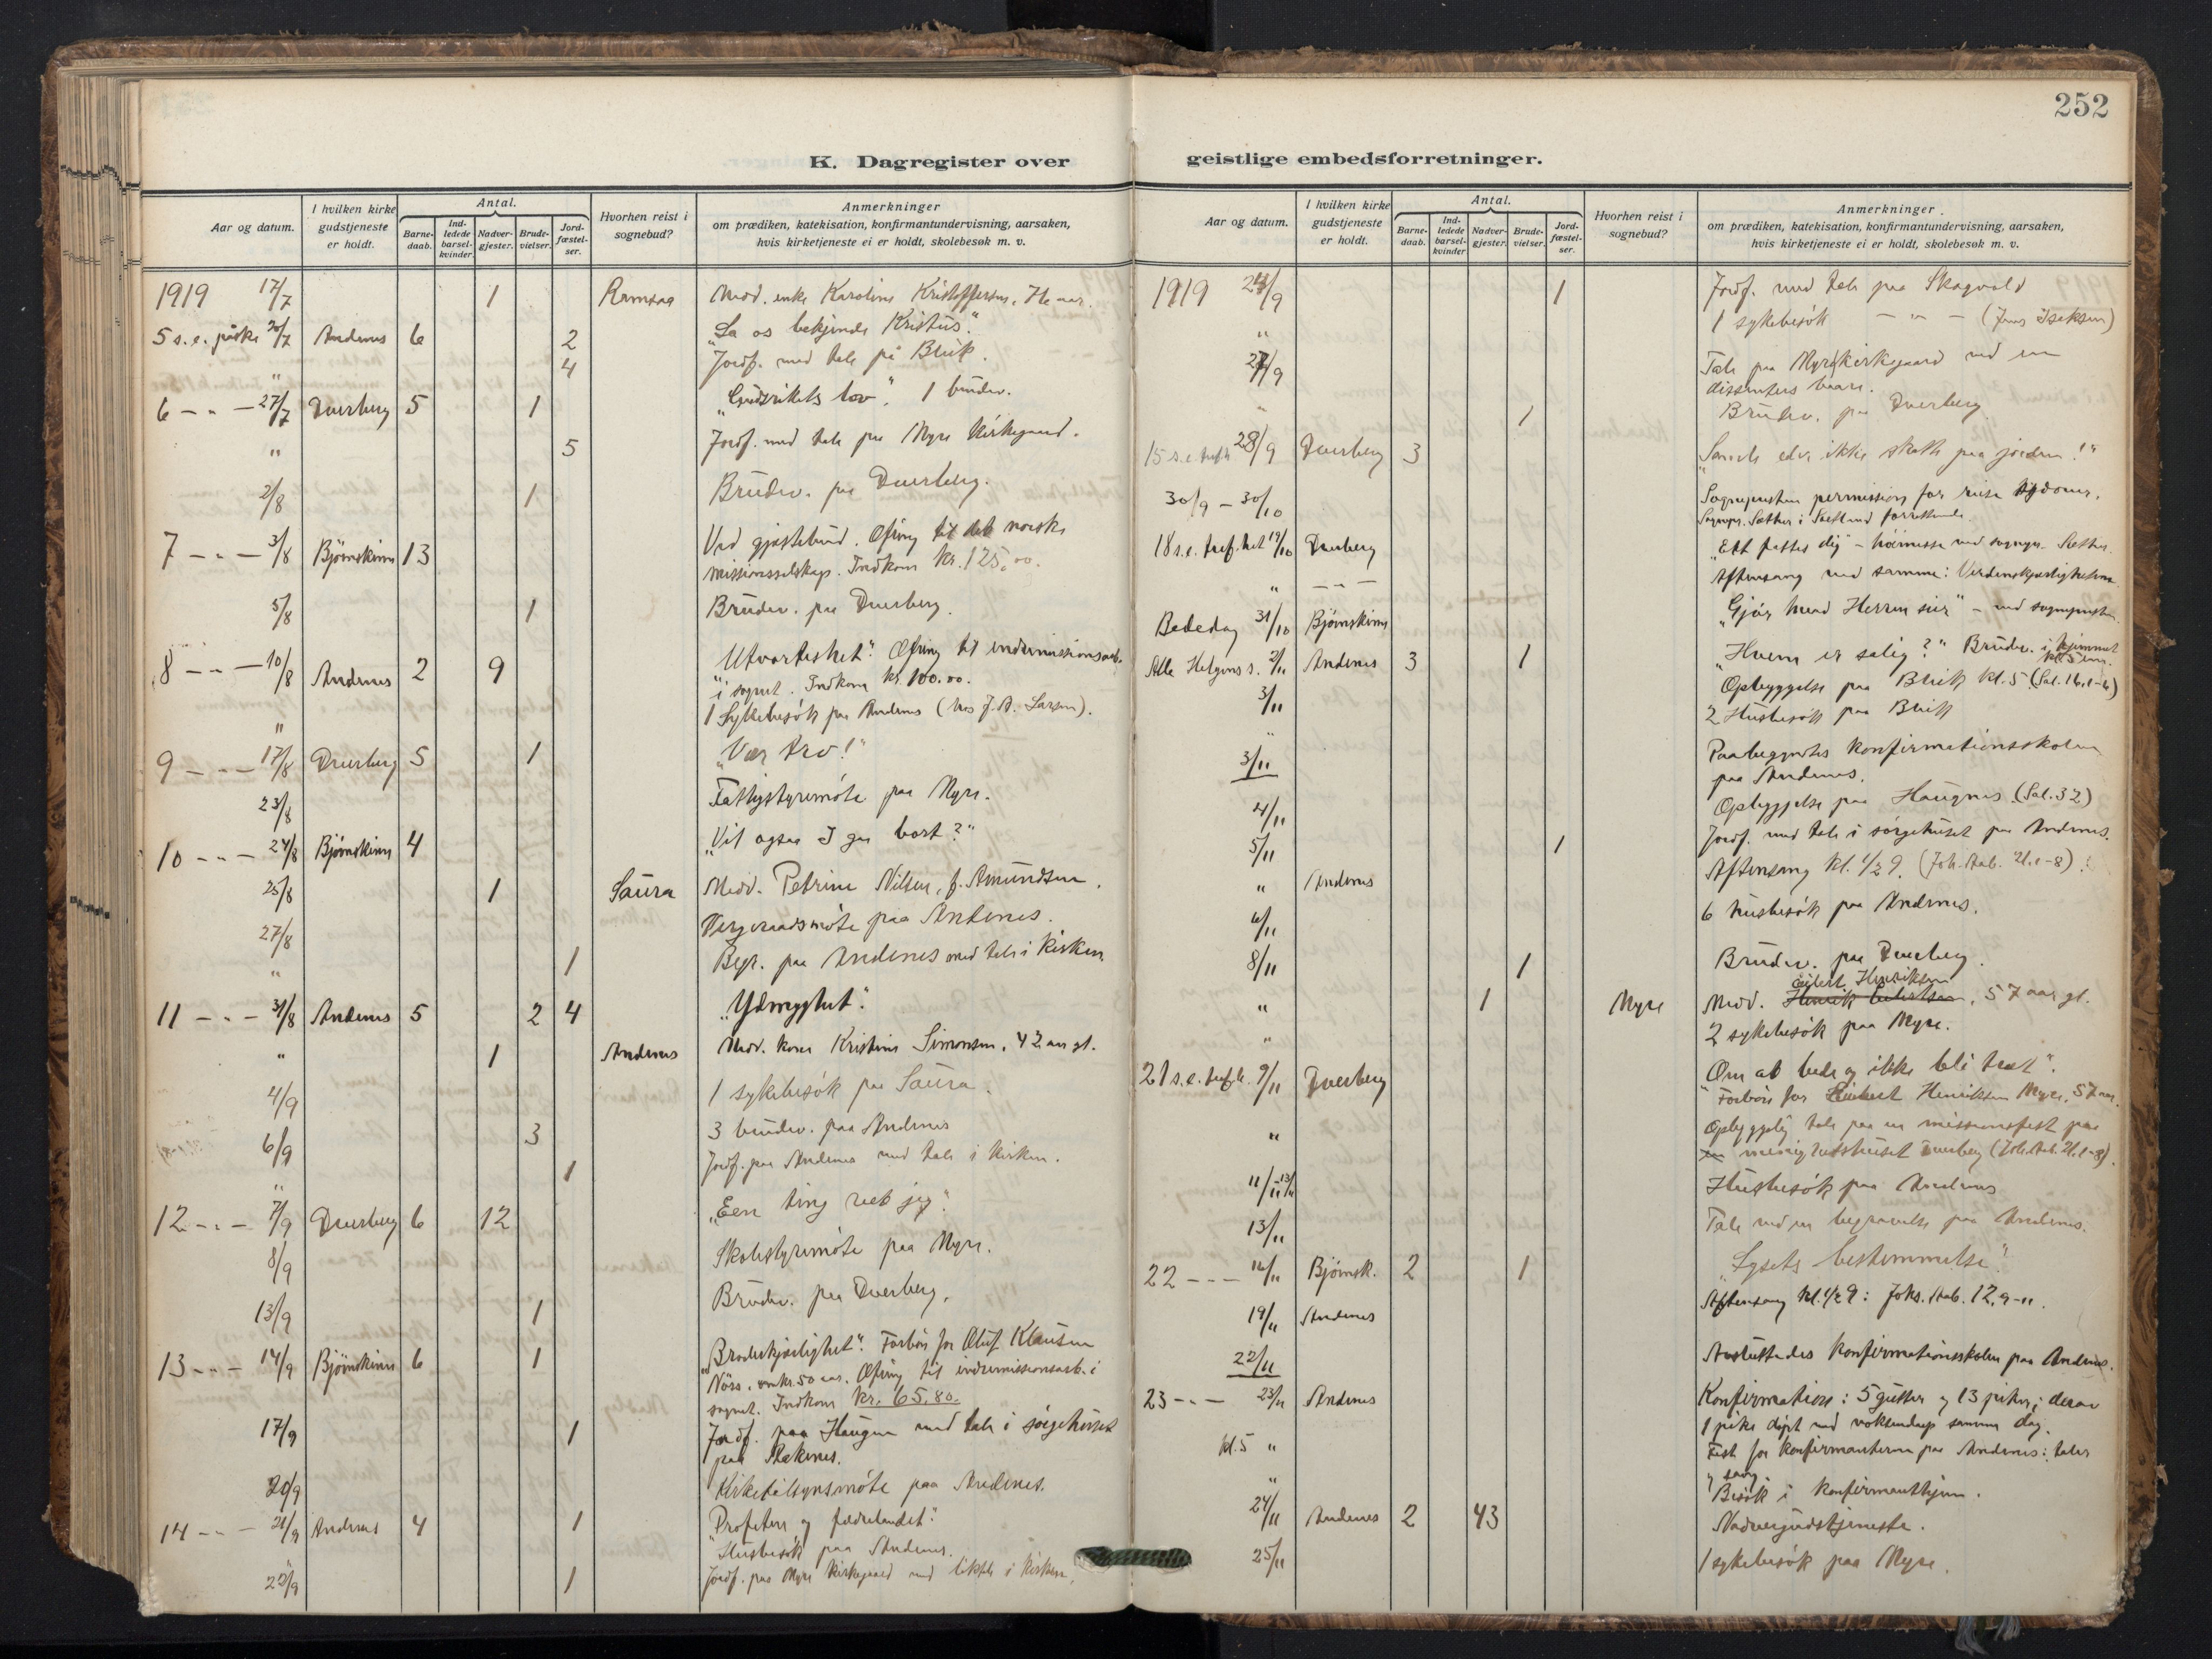 252
K. Dagregister over
Aar og datum.
I hvilken kirke gudstjeneste er holdt.
Antal.
Barne-daab.
Ind-ledede barsel-kvinder.
Nadver-gjester.
Brude-vielser.
Jord-fæstel-ser.
Hvorhen reist i sognebud?
Anmerkninger
om prædiken, katekisation, konfirmantundervisning, aarsaken,
hvis kirketjeneste ei er holdt, skolebesøk m. v.
1919 17/7 1 Ramsaa Medd. enke Karoline Kristoffersen,
5 s. e. 20/7 Andenes 6 2 „La os bekjende Kristus".
" 4 Jordf. med tale på Bleik.
6 - " - 27/7 Dverberg 5 1 „Gudsrikets lov". 1 brudev.
" 5 Jordf. med tale paa Myre kirkegaard.
2/8 1 Brudev. paa Dverberg.
7 - " - 3/8 Bjørnskinn 13 Ved gjæstebud. Ofring til det norske
missionsselskap. Indkom kr. 125,00.
5/8 1 Brudev. paa Dverberg.
8 - " - 10/8 Andenes 2 9 „Utvorteshet". Ofring til indremissionsarb.
i sognet. Indkom kr. 100.00.
" 1 Sykebesøk paa Andenes (hos J. A. Larsen).
9 - " - 17/8 Dverberg 5 1 „Vær tro!"
23/8 Fattigstyremøte paa Myre.
10 - " - 24/8 Bjørnskinn 4 „Vil ogsaa I gaa bort?"
25/8 1 Saura Medd. Petrine Nilsen, f. Amundsen.
27/8 Vergeraadsmøte paa Andenes.
" 1 Begr. paa Andenes med tale i kirken
11 - " - 31/8 Andenes 5 2 4 „Ydmyghet".
" 1 Andenes Medd. kone Kristine Simonsen, 42 aar gl.
4/9 1 sykebesøk paa Saura.
6/9 3 3 brudev. paa Andenes
" 1 Jordf. paa Andenes med tale i kirken.
12 - " - 7/9 Dverberg 6 12 „Een ting vet jeg".
8/9 Skolestyremøte paa Myre.
13/9 1 Brudev. paa Dverberg.
13 - " - 14/9 Bjørnskinn 6 1 „Broderkjærlighet". Forbøn for Oluf Klausen
Nöss, 50 aar. Ofring til indremissionsarb. i
sognet. Indkom kr. 65.80.
17/9 1 Jordf. paa Haugnes med tale i sørgehuset
paa
20/9 Kirketilsynsmøte paa Andenes.
14 - " - 21/9 Andenes 4 1 „Profeten og fædrelandet".
Husbesøk paa Andenes.
22/9 1 Jordf. paa Myre kirkegaard med liktale i kirken.
geistlige embedsforretninger.
Aar og datum.
I hvilken kirke gudstjeneste er holdt.
Antal.
Barne-daab.
Ind-ledede barsel-kvinder.
Nadver-gjester.
Brude-vielser.
Jord-fæstel-ser.
Hvorhen reist i sognebud?
Anmerkninger
om prædiken, katekisation, konfirmantundervisning, aarsaken,
hvis kirketjeneste ei er holdt, skolebesøk m. v.
1919 /9 1 Jordf. med tale paa Skogvold
" 1 sykebesøk - " - (Jens Iseksen)
27/9 Tale paa Myre kirkegaard ved en
dissenters baare.
" 1 Brudev. paa Dverberg
15 s. e. trefh. 28/9 Dverberg 3 „Samle eder ikke skatte paa jorden!"
30/9 - 30/10 Sognepresten permission for reise
Sognepr. Sæther i forrettende.
18 s. e. tref.het 19/10 Dverberg „Ett fattes dig" - høimesse ved sognepr. Sæther.
" - " - Aftensang ved samme: Verdenskjærligheten
Bededag 31/10 Bjørnskinn „Gjør hvad Herren sier" - ved sognepresten
Alle Helgens s. 2/11 Andenes 3 1 „Hvem er salig?" Brudev. i hjemmet
kl. 5 em.
3/11 Opbyggelse paa Bleik kl. 5 (Sal. 16, 1-6)
" 2 Husbesøk paa Bleik
3/11 Paabegyndtes konfirmationsskolen
paa Andenes.
4/11 Opbyggelse paa Haugnes (Sal. 32)
5/11 1 Jordf. med tale i sørgehuset paa Andenes.
" Andenes Aftensang kl. 1/2 9. (Joh. Aab. 21, 1-8).
6/11 6 husbesøk paa Andenes.
8/11 1 Brudev. paa Dverberg
Eilert Henriksen
" 1 Myre Medd. Henrik , 57 aar gl.
" 2 sykebesøk paa Myre.
21 s. e. trefh. 9/11 Dverberg „Om at bede og ikke bli træt".
Forbøn for Eilert Henriksen Myre, 57 aar.
" Opbyggelig tale paa en missionsfest paa
menighetshuset Dverberg (Joh. Aab. 21, 1-8).
11/11-13/11 Husbesøk paa Andenes
13/11 Tale ved en begravelse paa Andenes.
22 - " - 16/11 Bjørnsk. 2 1 „Lysets bestemmelse".
19/11 Andenes Aftensang kl. 1/2 9: Johs. Aab. 12, 9-11.
22/11 Avsluttedes konfirmationsskolen paa Andenes.
23 - " - 23/11 Andenes Konfirmation: 5 gutter og 13 piker; derav
1 pike døpt ved voksendaap samme dag.
kl. 5 " Fest for konfirmanterne paa Andenes: taler
og sang.
" Besøk i konfirmanthjem.
24/11 Andenes 2 43 Nadvergudstjeneste.
25/11 1 sykebesøk paa Myre.